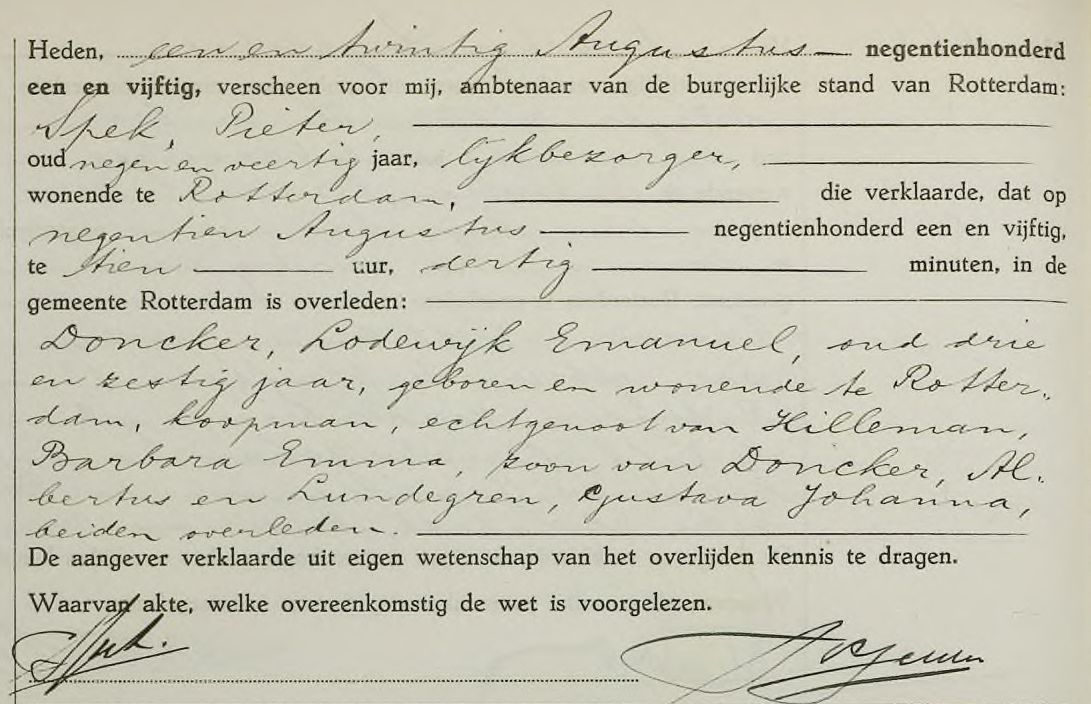 Heden, een en twintig Augustus negentienhonderd
een en vijftig, verscheen voor mij, ambtenaar van de burgerlijke stand van Rotterdam:
Spek, Pieter,
oud negen en veertig jaar, lijkbezorger,
wonende te Rotterdam, die verklaarde, dat op
negentien Augustus negentienhonderd een en vijftig,
te tien uur, dertig minuten, in de
gemeente Rotterdam is overleden:
Doncker, Lodewijk Emanuel, oud drie
en zestig jaar, geboren en wonende te Rotter-
dam, koopman, echtgenoot van Hilleman,
Barbara Emma, zoon van Doncker, Al-
bertus en Lundegren, Gustava Johanna,
beiden overleden.
De aangever verklaarde uit eigen wetenschap van het overlijden kennis te dragen.
Waarvan akte, welke overeenkomstig de wet is voorgelezen.